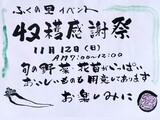 ふくの里イベント
収穫感謝祭
11月12日(日)
AM7:00~12:00
旬の野菜・花苗がいっぱい
おいしいものも用意してあります
お楽しみに